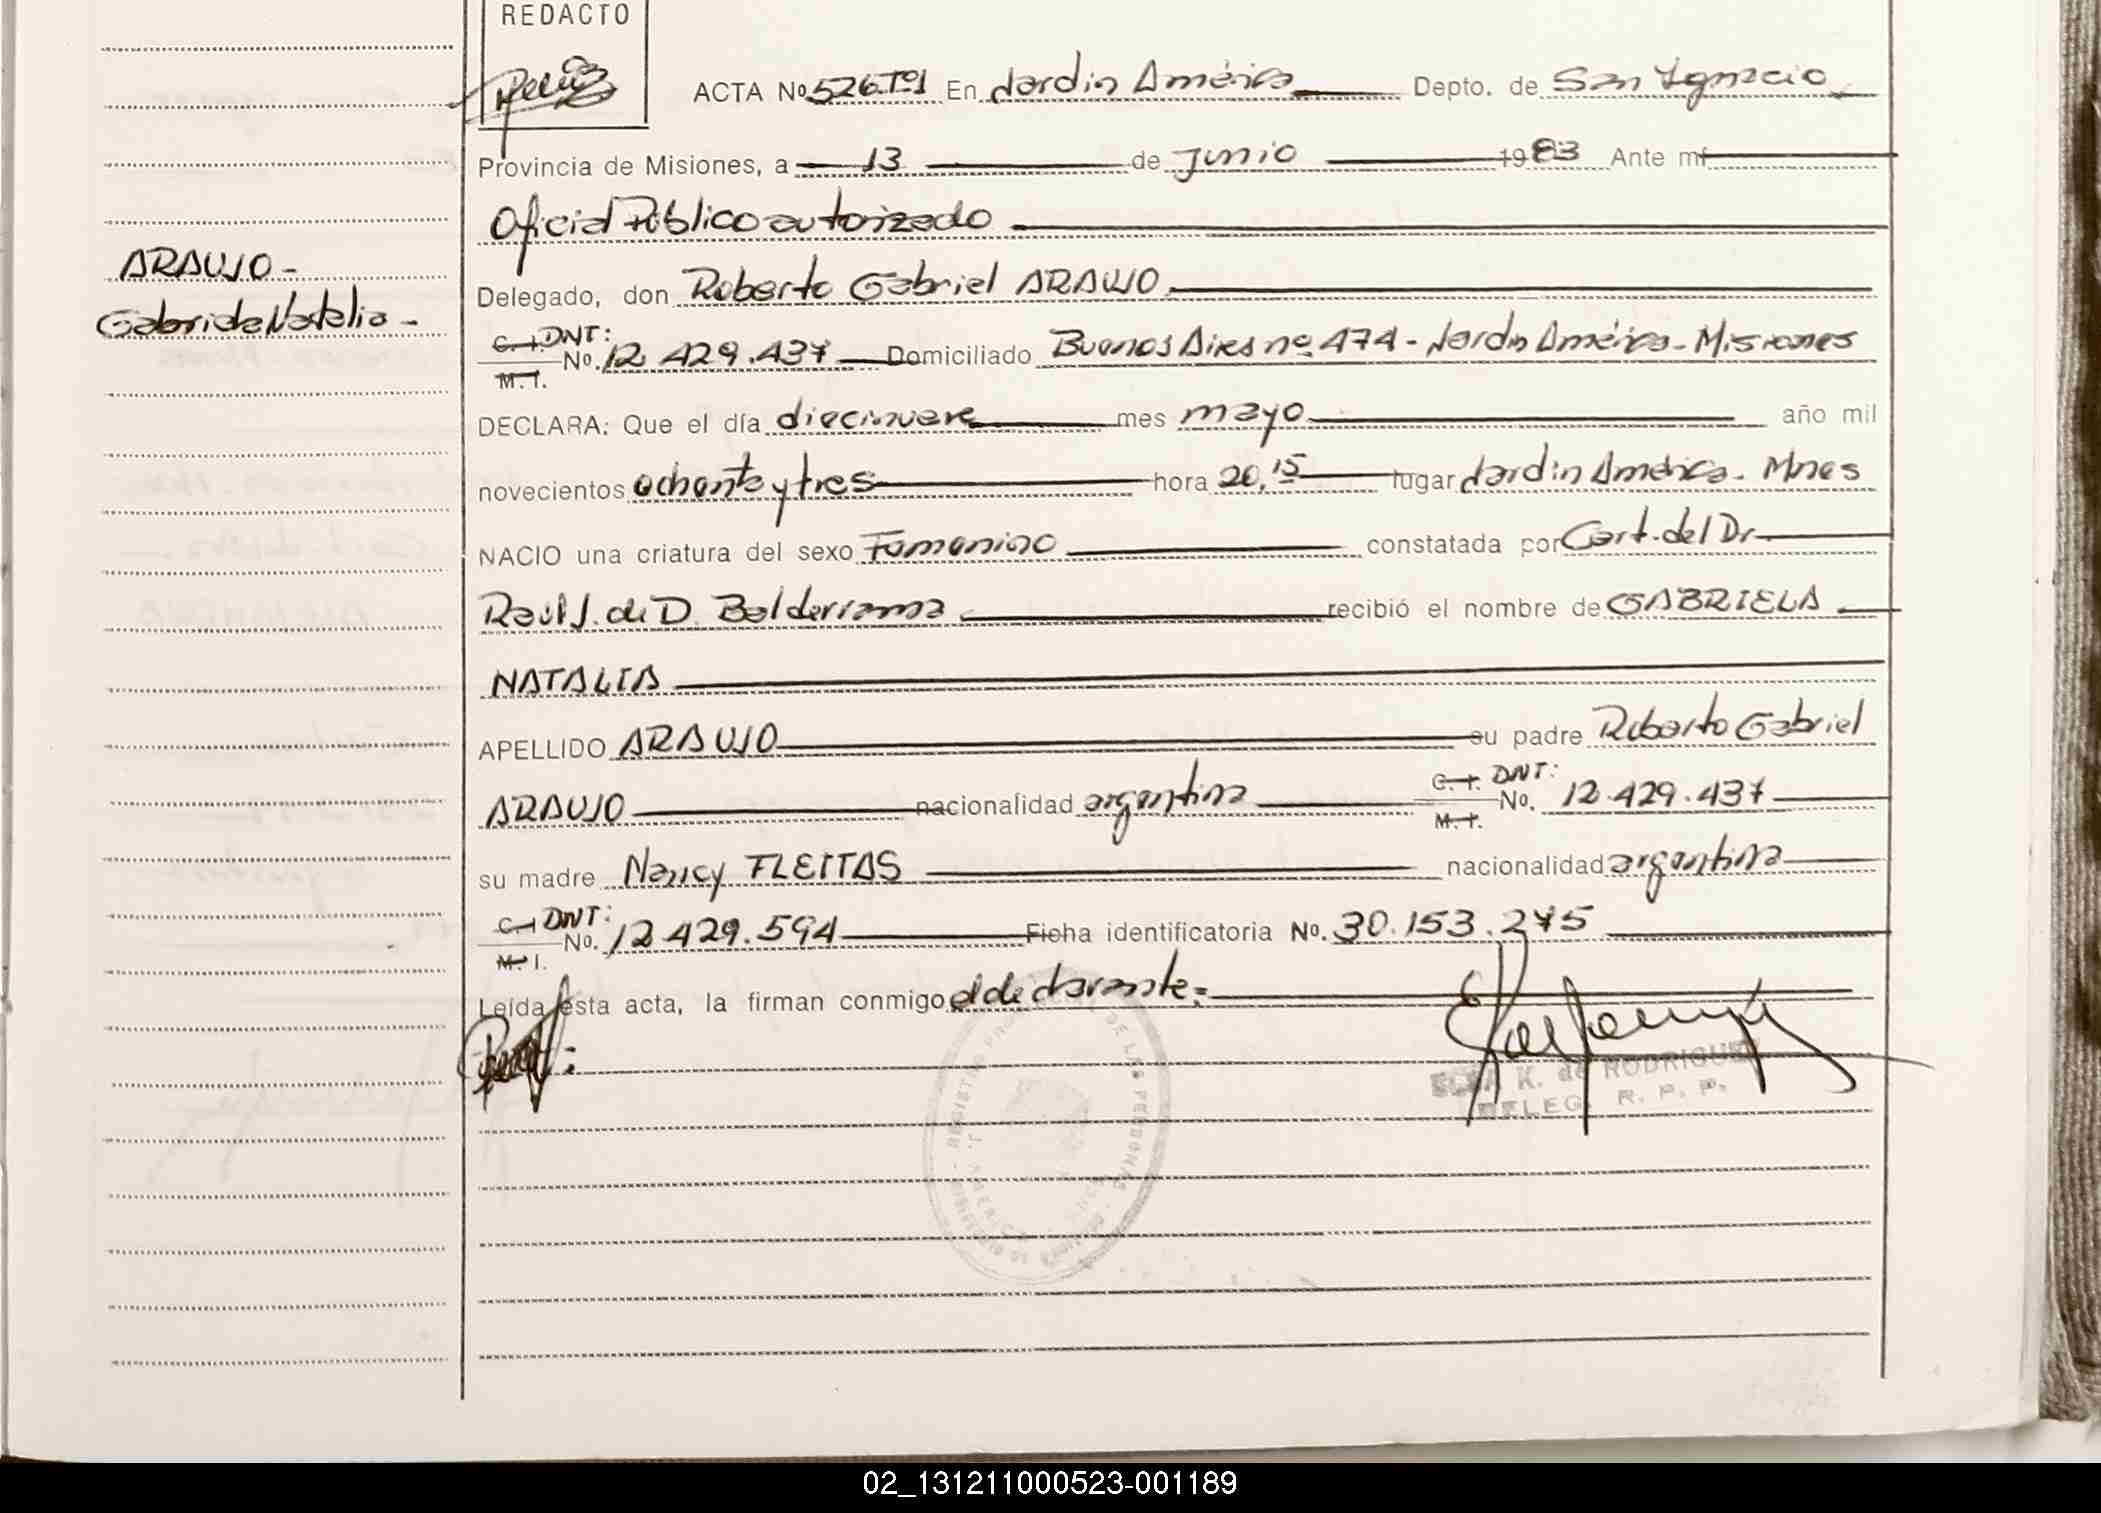 REDACTO
ACTA Nº 526.Tº1 En Jardin América Depto. de San Ignacio
Provincia de Misiones, a 13 de Junio 1983 Ante mí
Oficial Público autorizado
ARAUJO-
Gabriela Natalia-
Delegado, don Roberto Gabriel ARAUJO
C.I. DNI:
No. 12.429.437 Domiciliado Buenos Aires nº 474 - Jardin América - Misiones
M.I.
DECLARA: Que el día diecinueve mes mayo año mil
novecientos ochenta y tres hora 20,15 lugar Jardin América - Mnes
NACIO una criatura del sexo Femenino constatada por Cert. del Dr
Raúl J. de D. Balderrama recibió el nombre de GABRIELA
NATALIA
APELLIDO ARAUJO su padre Roberto Gabriel
ARAUJO nacionalidad argentina C.I. DNI: No. 12.429.437
M.I.
su madre Nancy FLEITAS nacionalidad argentina
C.I. DNI:
No. 12.429.594 Ficha identificatoria No. 30.153.275
M.I.
Leída esta acta, la firman conmigo el declarante:
K. de RODRIGUEZ
DELEG. R. P. P.
02_131211000523-001189